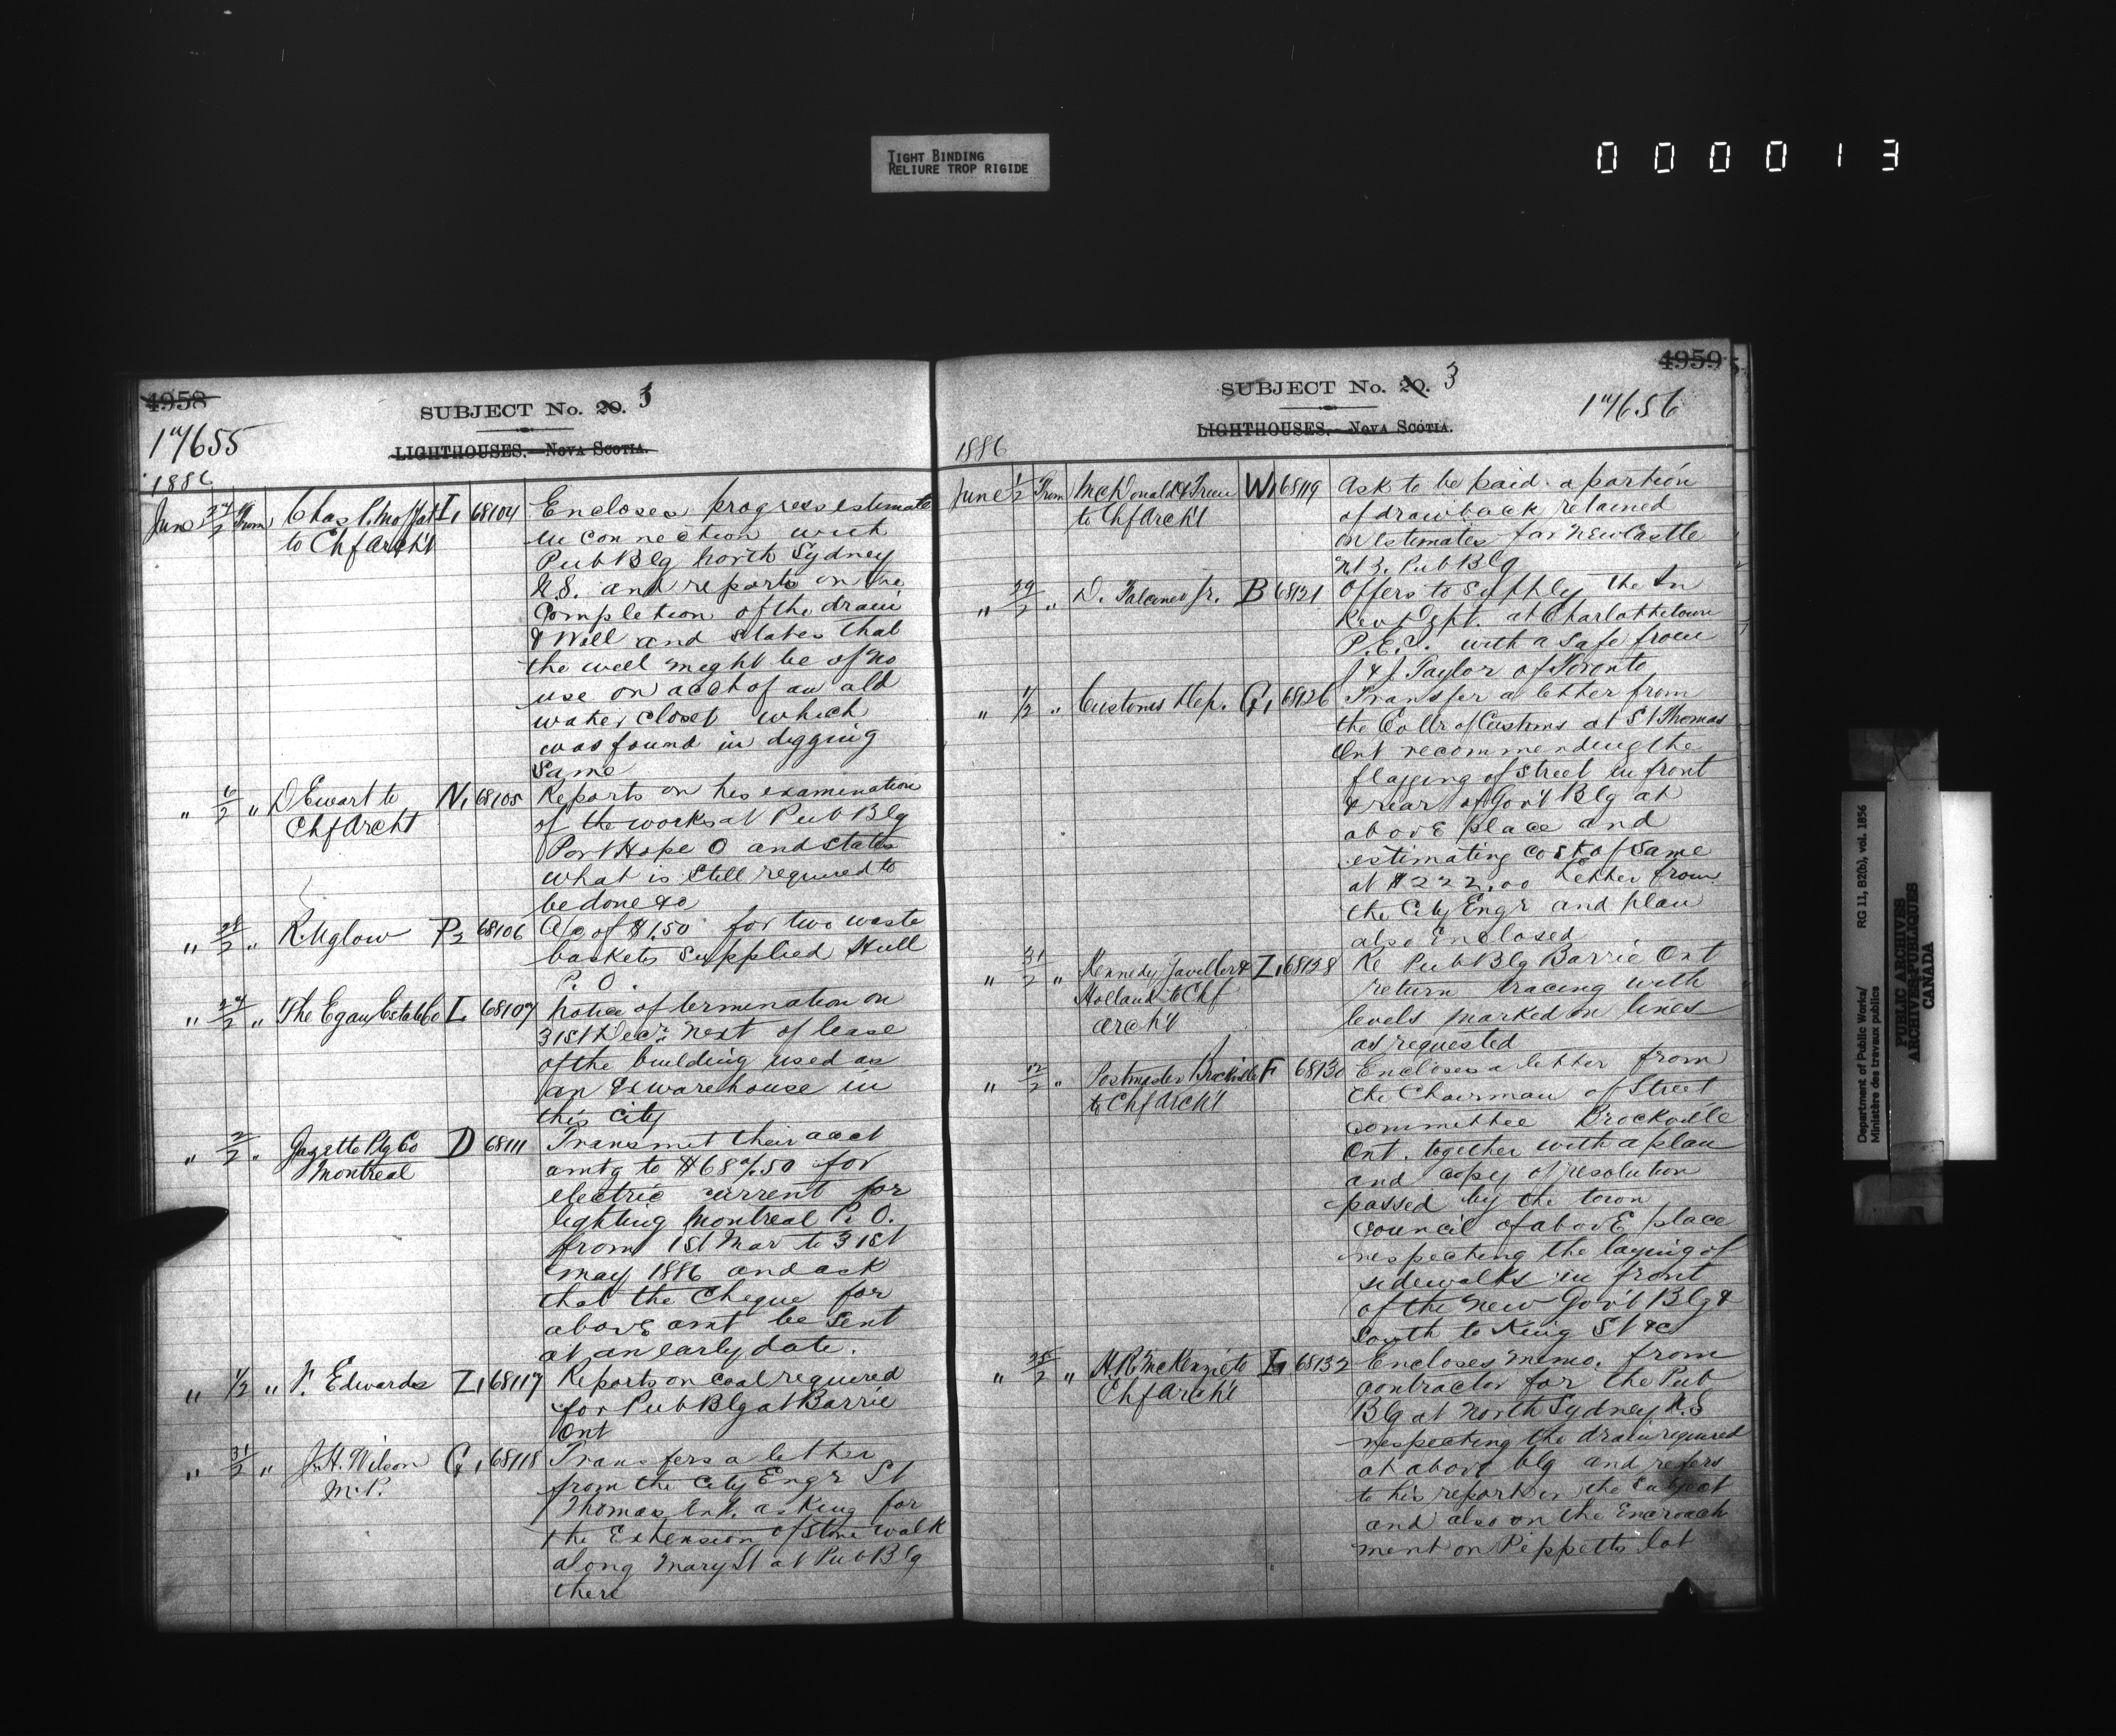 TIGHT BINDING
RELIURE TROP RIGIDE
000013
4958
SUBJECT No. 20. 3
17655
LIGHTHOUSES.—NOVA SCOTIA.
1886
June 27/2 From Chas P. Moffat I1 68104 Encloses progress estimate
to Chf Arch't in connection with
Pub Blg North Sydney
N.S. and reports on the
Completion of the drain
& Well and states that
the well might be of no
use on acct of an old
water closet which
was found in digging
Same
" 6/2 " D Ewart to N1 68105 Reports on his examination
Chf Archt of the works at Pub Blg
Port Hope O and states
what is still required to
be done &c
" 28/2 " R. Uglow P2 68106 A/c of $1.50 for two waste
baskets supplied Hull
P. O.
" 27/2 " The Egan Estate Co L 68107 Notice of termination on
31st Decr. next of lease
of the building used as
an Ex warehouse in
this City
" 2/2 " Gazette Ptg Co D 68111 Transmit their acct
Montreal amtg to $687.50 for
electric current for
lighting Montreal P. O.
from 1st Mar to 31st
May 1886 and ask
that the Cheque for
above amt be Sent
at an early date.
" 1/2 " Edwards Z1 68117 Reports on coal required
for Pub Blg at Barrie
Ont
" 31/2 " J. H. Wilson G1 68118 Transfers a letter
M.P. from the City Engr St
Thomas Ont. asking for
the Extension of stone walk
along Mary St at Pub Blg
there
4959
SUBJECT No. 20. 3
17656
LIGHTHOUSES.—NOVA SCOTIA.
1886
June 1/2 From McDonald & W1 68119 Ask to be paid a portion
to Chf Arch't of drawback retained
on estimates for Newcastle
N.B. Pub Blg
" 29/2 " D. Falconer Jr. B 68121 Offers to Supply the In
Rev Dept. at Charlottetown
P.E.I. with a Safe from
J & J. Taylor of Toronto
" 1/2 " Customs Dep. G1 68126 Transfer a letter from
the Collr of Customs at St Thomas
Ont recommending the
flagging of street in front
& rear of Gov't Blg at
above place and
estimating cost of same
at $222.00 Letter from
the City Engr and plan
also Enclosed
" 31/2 " Kennedy & Z1 68128 Re Pub Blg Barrie Ont
Holland to Chf return tracing with
Arch't levels marked in lines
as requested
" 12/2 " Postmaster Brockville F 68130 Encloses a letter from
to Chf Arch't the Chairman of Street
committee Brockville
Ont. together with a plan
and copy of resolution
passed by the town
council of above place
respecting the laying of
sidewalks in front
of the new Gov't Blg &
South to King St &c
" 25/2 " H. R. McKenzie to I1 68132 Encloses memo. from
Chf Arch't contractor for the Pub
Blg at North Sydney N.S
respecting the drain required
at above blg and refers
to his report on the subject
and also on the Encroach
ment on Peppetts lot
Department of Public Works/ RG 11, B2(b), vol. 1856
Ministère des travaux publics
PUBLIC ARCHIVES
ARCHIVES PUBLIQUES
CANADA